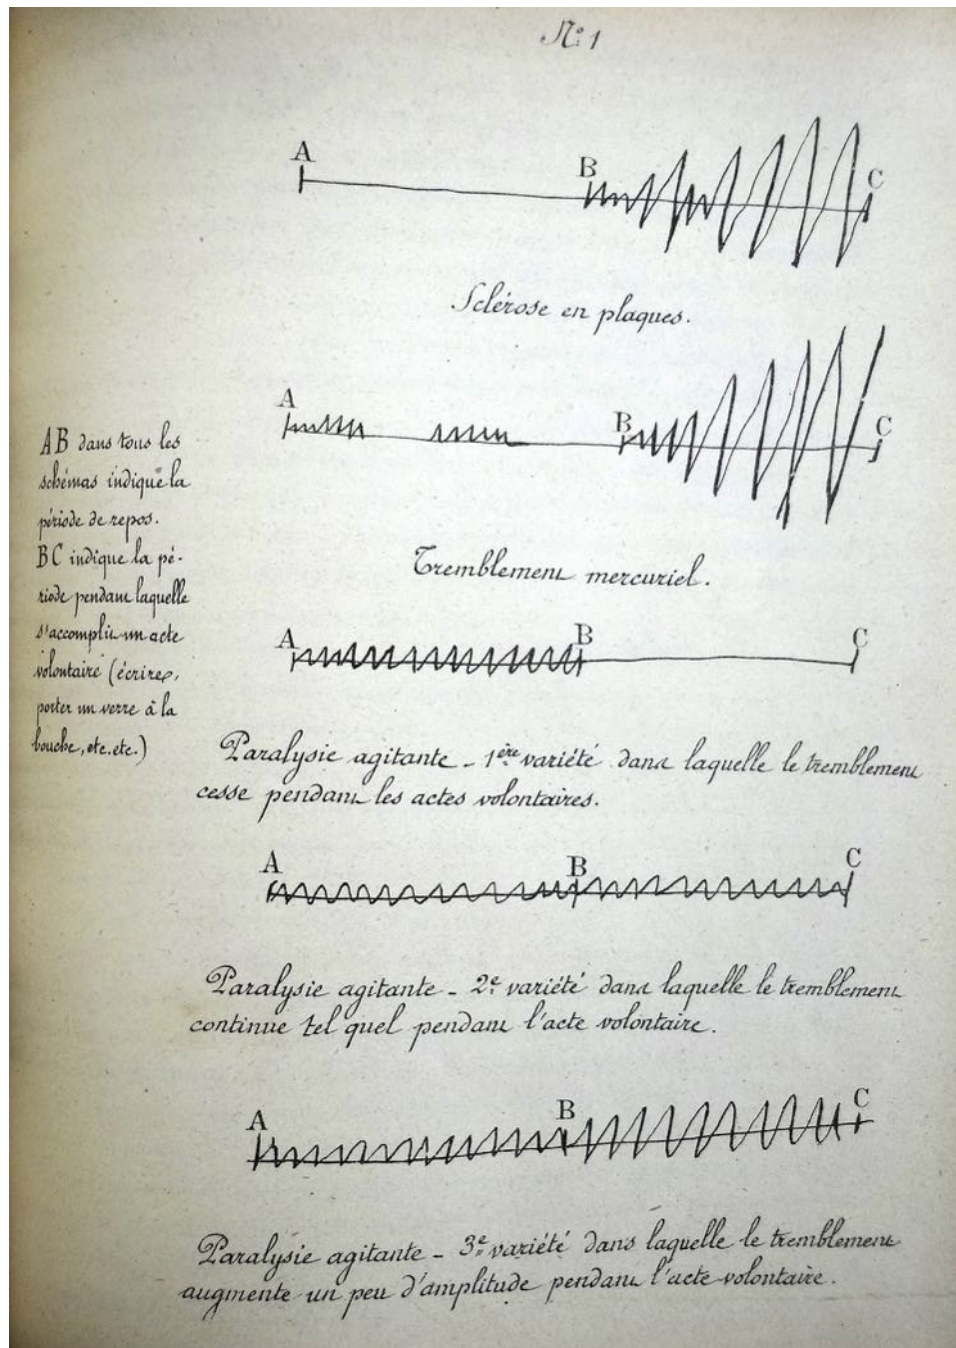 Nº 1
A B C
Sclérose en plaques.
A B C
Tremblement mercuriel.
AB dans tous les
schémas indique la
période de repos.
BC indique la pé-
riode pendant laquelle
s'accomplit un acte
volontaire (écrire,
porter un verre à la
bouche, etc. etc.)
A B C
Paralysie agitante - 1ère variété dans laquelle le tremblement
cesse pendant les actes volontaires.
A B C
Paralysie agitante - 2e variété dans laquelle le tremblement
continue tel quel pendant l'acte volontaire.
A B C
Paralysie agitante - 3e variété dans laquelle le tremblement
augmente un peu d'amplitude pendant l'acte volontaire.